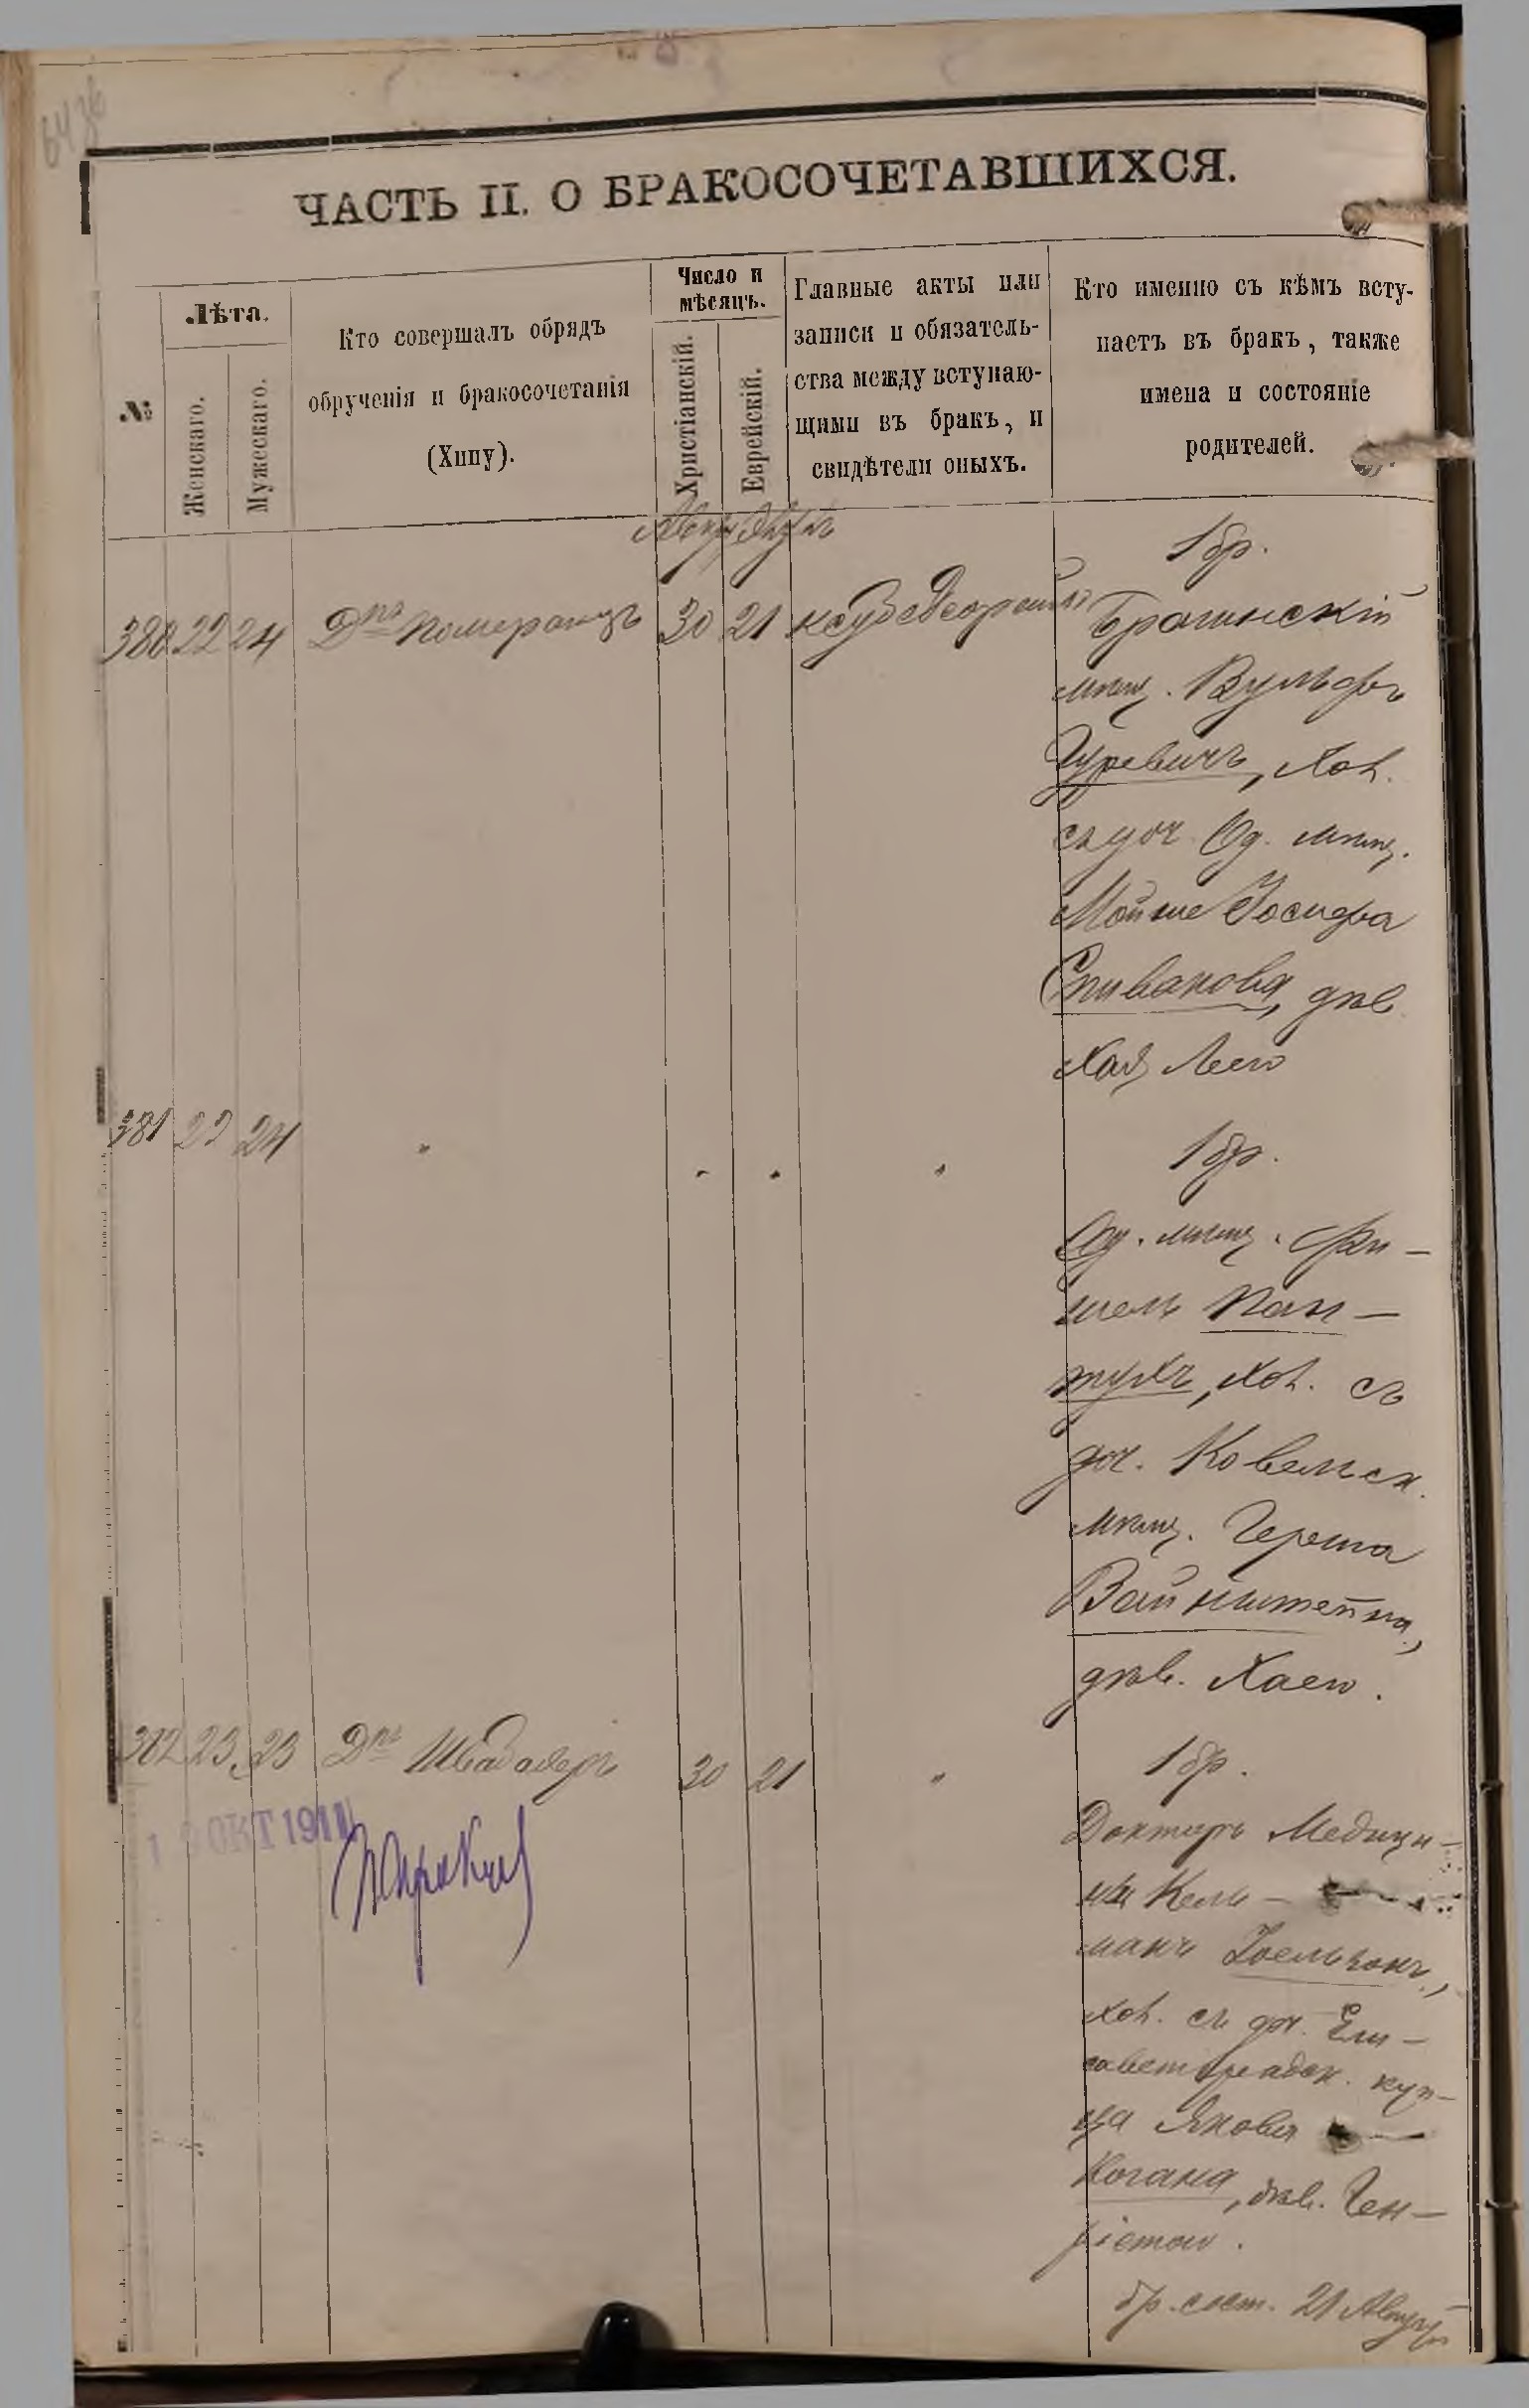 ЧАСТЬ II. О БРАКОСОЧЕТАВШИХСЯ.
№
Лѣта.
Женскаго.
Мужескаго.
Кто совершалъ обрядъ
обрученія и бракосочетанія
(Хипу).
Число и
мѣсяцъ.
Христіанскій.
Еврейскій.
Главные акты или
записи и обязатель-
ства между вступаю-
щими въ бракъ, и
свидѣтели оныхъ.
Кто именно съ кѣмъ всту-
паетъ въ бракъ, также
имена и состояніе
родителей.
1 бр.
380 22 24 Дръ Померанцъ 30 21
Брагинскій
мѣщ. Вульфъ
Гуревичъ, хол.
съ доч. Од. мѣщ.
Мойше Іосифа
Спивакова, дѣв.
Хая Леею
381 22 24 " " " "
1 бр.
Од. мѣщ. Фи-
шель Пан-
тухъ, хол. съ
доч. Ковельск.
мѣщ. Герша
Вайнштейна,
дѣв. Хаею.
382 23 23 Дръ Швабахеръ 30 21 "
1 бр.
Докторъ Медици-
ны Кель-
манъ Іоельсонъ,
хол. съ доч. Ели-
саветградск. куп-
ца Якова
Когана, дѣв. Ген-
ріетою.
бр. сост. 21 Августа
ОКТ 1911